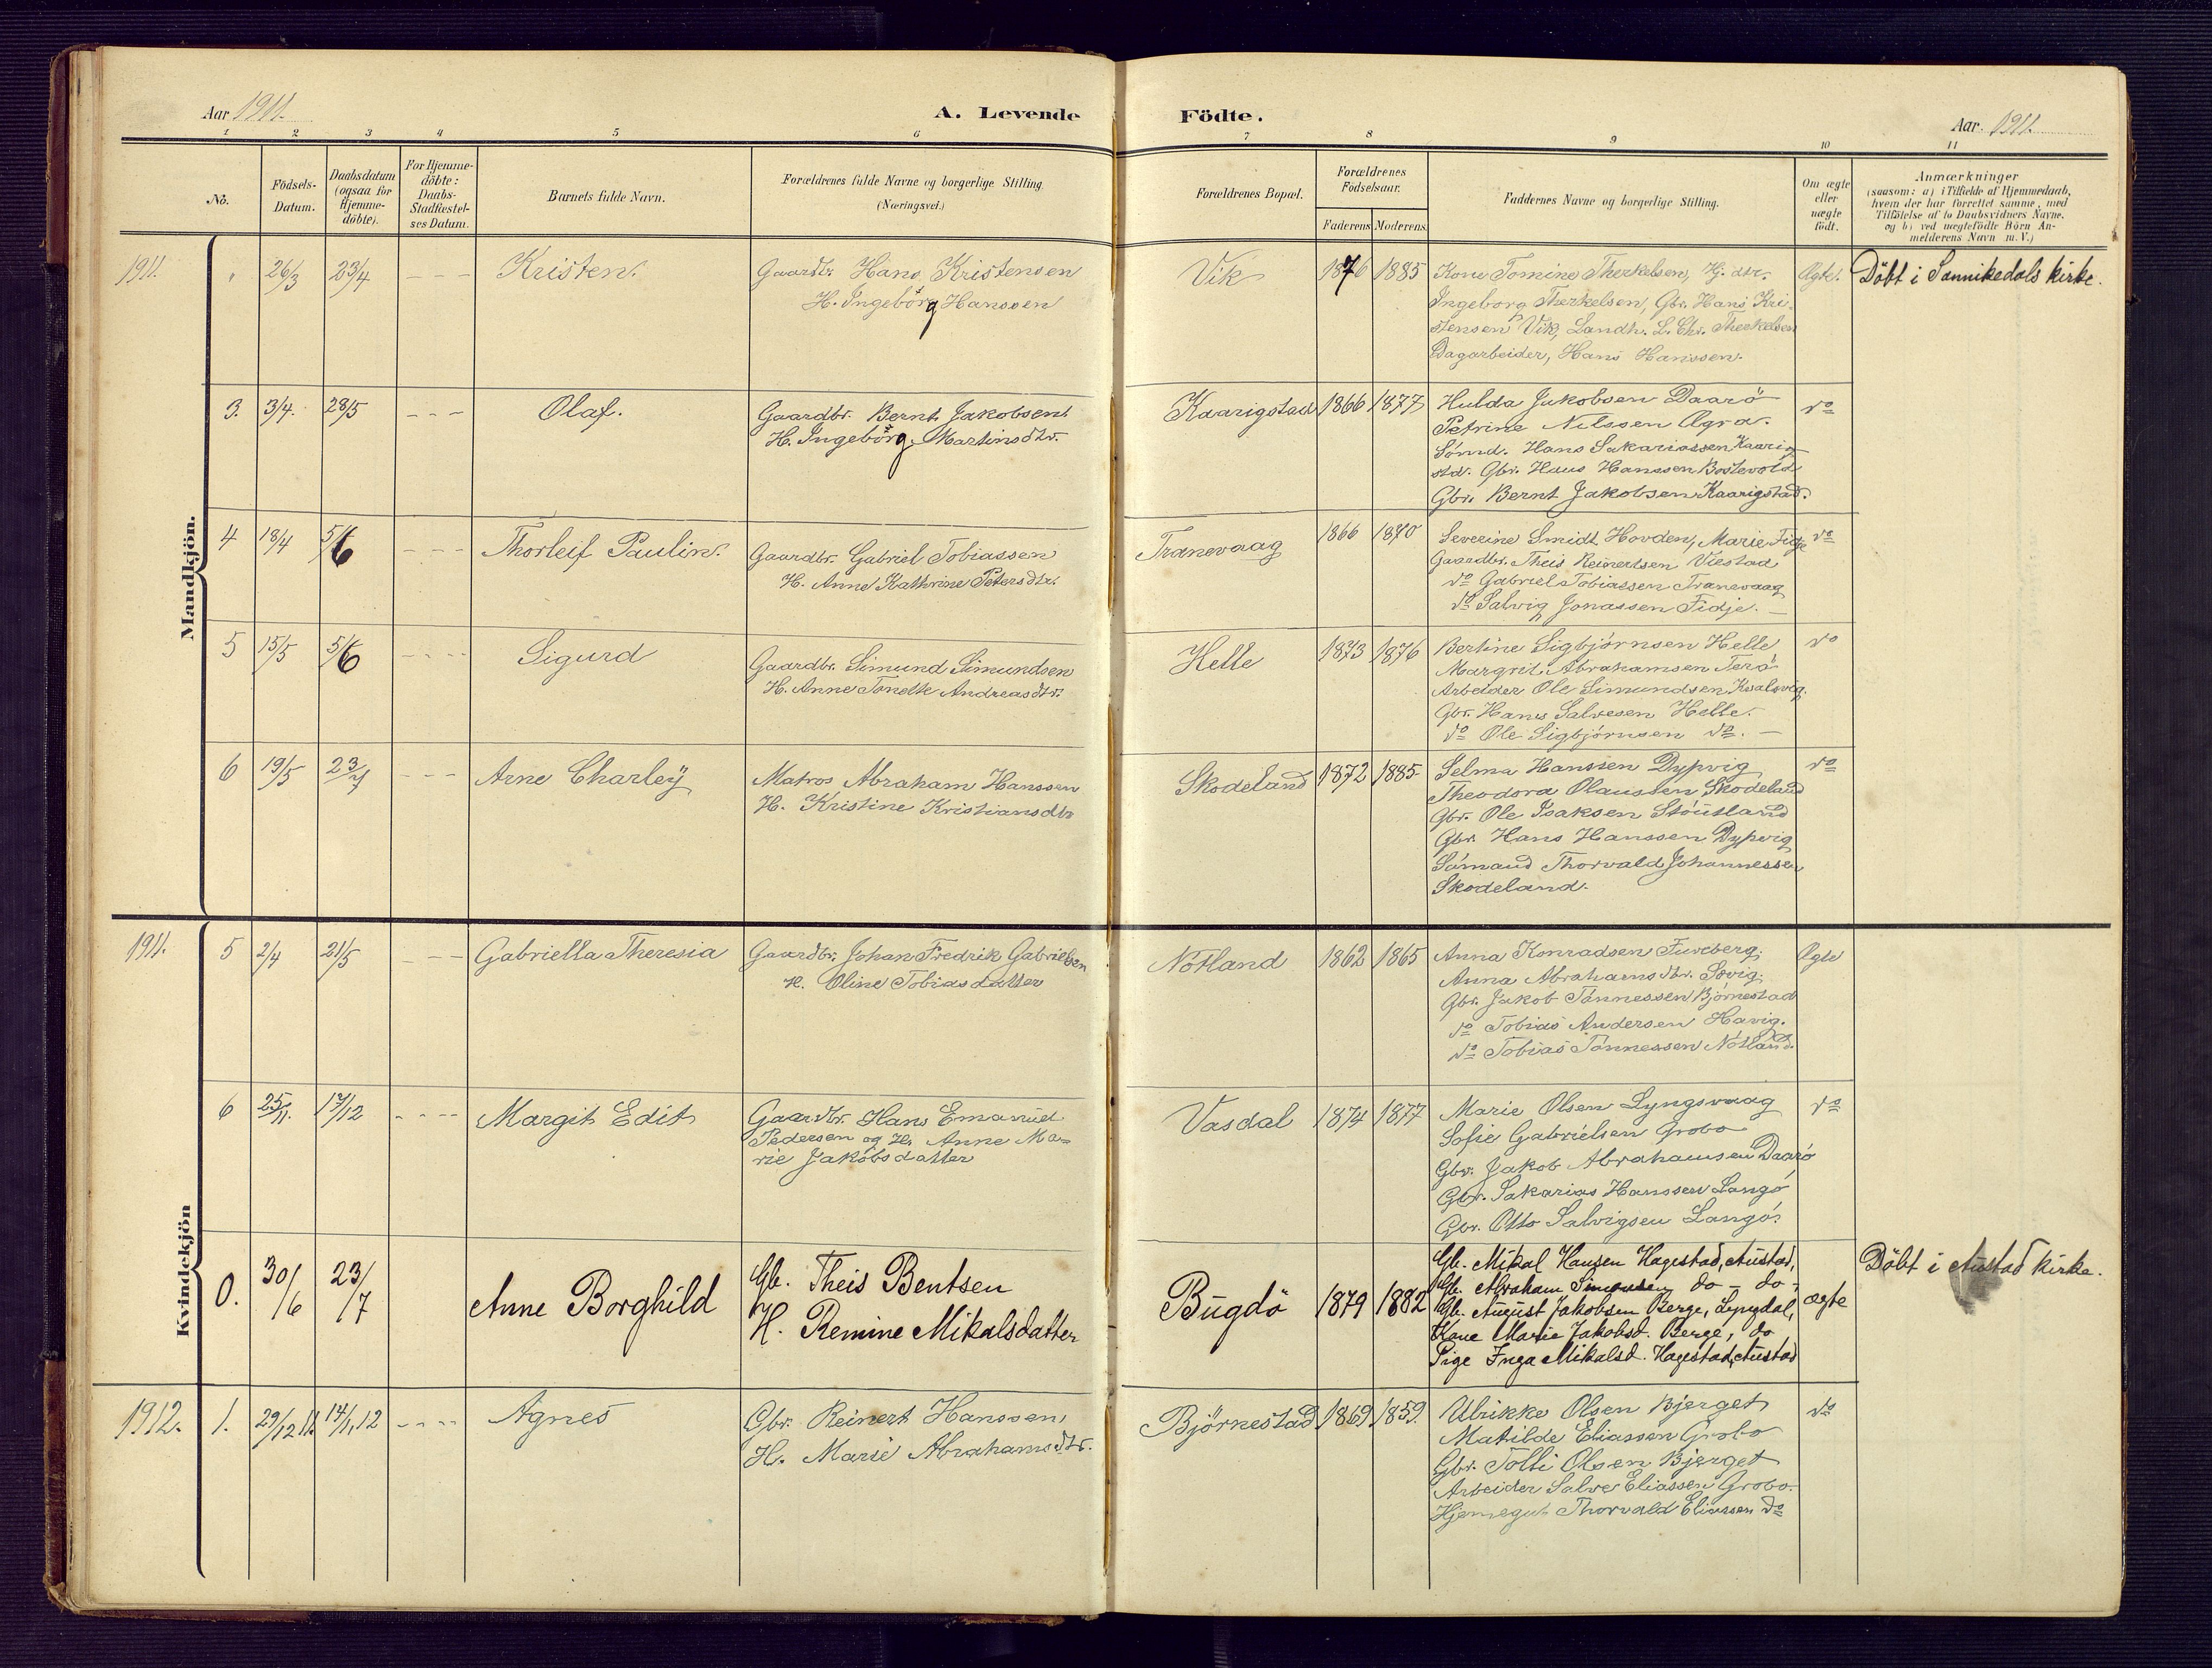 Aar 1911.
A. Levende Födte.
Aar. 1911.
1 2 3 4 5 6 7 8 9 10 11
No.
Födsels-
Datum.
Daabsdatum
(ogsaa for
Hjemme-
döbte).
For Hjemme-
döbte:
Daabs-
Stadfæstel-
ses Datum.
Barnets fulde Navn.
Forældrenes fulde Navne og borgerlige Stilling
(Næringsvei.)
Forældrenes Bopæl.
Forældrenes
Födselsaar.
Faderens Moderens
Faddernes Navne og borgerlige Stilling.
Om ægte
eller
uægte
födt.
Anmærkninger
(saasom: a) i Tilfælde af Hjemmedaab,
hvem der har forrettet samme, med
Tilföielse af to Daabsvidners Navne,
og b) ved uægtefödte Börn An-
melderens Navn m. V.)
Mandkjön.
1911. " 26/3 23/4 - - - Kristen.
Gaardbr. Hans Kristensen
H. Ingebörg Hanssen
Vik 1876 1885
Kone Tomine Therkelsen, Hj. dtr.
Ingeborg Therkelsen, Gbr. Hans Kri-
stensen Vik, Landh. L. Chr. Therkelsen
Dagarbeider, Hans Hanssen.
Ægte. Döbt i Sannikedals kirke.
3. 3/4. 28/5 - - - Olaf.
Gaardbr. Bernt Jakobsen
H. Ingebörg Martinsdtr.
Kaarigstad 1866 1877
Hulda Jakobsen Daarö
Petrine Nilssen Agra.
Sömd. Hans Sakariassen Kaarig-
std. Gbr. Hans Hanssen Bostevold
Gbr. Bernt Jakobsen Kaarigstad.
do
4 18/4 5/6 - - - Thorleif Paulin.
Gaardbr. Gabriel Tobiassen
H. Anne Kathrine Petersdtr.
Tranevaag 1866 1870
Severine Smidt Hovden, Marie Fidje
Gaardbr. Theis Reinertsen Viestad
do Gabriel Tobiassen Tranevaag
do Salvig Jonassen Fidje. -
do
5 15/5 5/6 - - - - Sigurd
Gaardbr. Simund Simundsen
H. Anne Tondte Andreasdtr.
Helle 1873 1876
Bertine Sigbjörnsen Helle
Margrit Abrahamsen Terö
Arbeider Ole Simundsen Kvalsvig.
Gbr. Hans Salvesen Helle.
do Ole Sigbjörnsen do. -
do
6 19/5 23/7 - - - Arne Charley
Matros Abraham Hanssen
H. Kristine Kristiansdtr
Skodeland 1872 1885
Selma Hanssen Dypvig
Theodora Olaussen Skodeland
Gbr. Ole Isaksen Stöutland
Gbr. Hans Hanssen Dypvig
Sömand Thorvald Johannessen
Skodeland.
do
Kvindekjön
1911. 5 2/4 21/5 - - - Gabriella Theresia
Gaardbr. Johan Fredrik Gabrielsen
H. Oline Tobiasdatter
Nötland 1862 1865
Anna Konradsen Fureberg.
Anna Abrahamsdtr. Sövig.
Gbr. Jakob Tönnessen Björnestad
do Tobias Andersen Havig.
do Tobias Tönnessen Nötland.
Ægte
6 25/11. 17/12 - - - - Margit Edit
Gaardbr. Hans Emanuel
Pedersen og H. Anne Ma-
rie Jakobsdatter
Vasdal 1874 1877
Marie Olsen Lyngsvaag
Sofie Gabrielsen Grobo
Gbr. Jakob Abrahamsen Daarö
Gbr. Sakarias Hanssen Langö
Gbr. Otto Salvigsen Langö.
do
0. 30/6 23/7 Anne Borghild
Gb. Theis Bentsen
H. Remine Mikalsdatter
Bugdö 1879 1882
Gb. Mikal Hansen Hagestad, Austad,
Gb. Abraham Simonsen do - do -
Gb. August Jakobsen Berge, Lyngdal,
Kone Marie Jakobsd. Berge, do
Pige Inga Mikalsd. Hagestad, Austad
ægte Döbt i Austad kirke.
1912. 1. 29/12 11. 14/1, 12 - - - - Agnes
Gbr. Reinert Hanssen,
H. Marie Abrahamsdtr.
Björnestad 1869 1859.
Ulrikke Olsen Bjerget
Matilde Eliassen Grobo
Gbr. Tolli Olsen Bjerget
Arbeider Salve Eliassen Grobo.
Hjemegut Thorvald Eliassen do
do